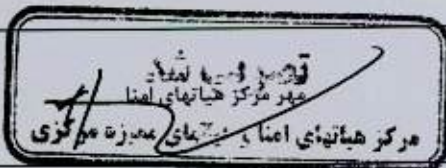 مهر مرکز هیاتهای امنا
مرکز هیأتهای امنا و هیأتهای ممیزه مرکزی